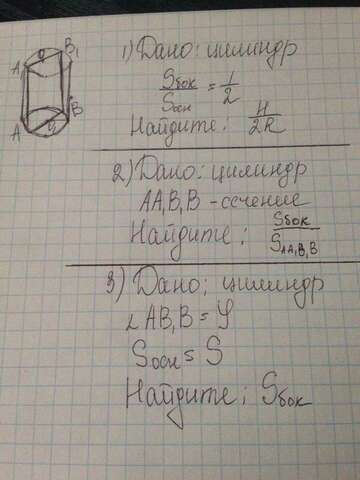 A₁ O₁ B₁
A O B
1) Дано: цилиндр
Sбок/Sосн = 1/2
Найдите: H/2R
2) Дано: цилиндр
AA₁B₁B - сечение
Найдите: Sбок/SAA₁B₁B
3) Дано: цилиндр
∠AB₁B = φ
Sосн = S
Найдите: Sбок